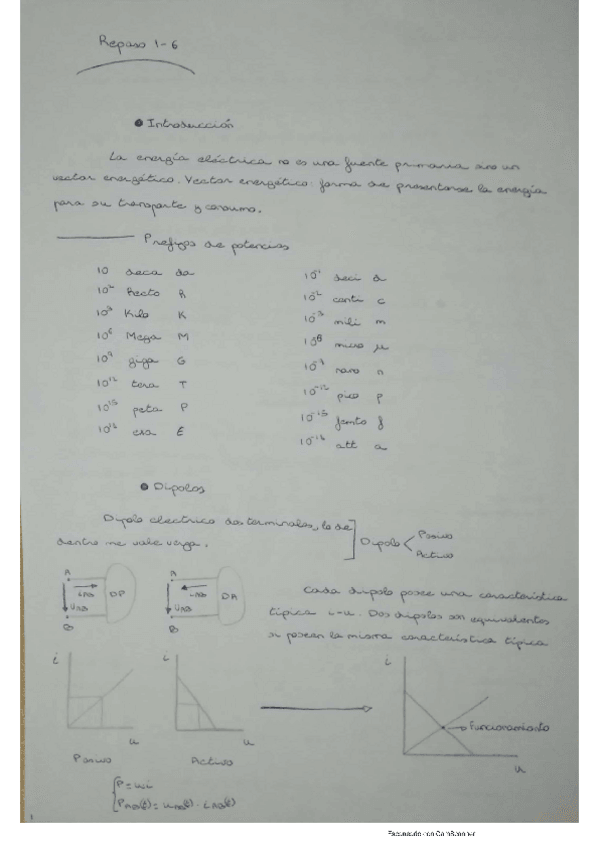 Repaso 1-6
● Introducción
La energía eléctrica no es una fuente primaria sino un
vector energético. Vector energético: forma de presentarse la energía
para su transporte y consumo.
Prefijos de potencias
10 deca da
10² Hecto h
10³ Kilo K
10⁶ Mega M
10⁹ giga G
10¹² tera T
10¹⁵ peta P
10¹⁸ exa E
10⁻¹ deci d
10⁻² centi c
10⁻³ mili m
10⁻⁶ micro μ
10⁻⁹ nano n
10⁻¹² pico p
10⁻¹⁵ femto f
10⁻¹⁸ att a
● Dipolos
Dipolo electrico dos terminales, lo de
dentro me vale verga.
Dipolo
Pasivo
Activo
A
iAB
DP
UAB
B
A
-iAB
DA
UAB
B
Cada dipolo posee una característica
típica i-u. Dos dipolos son equivalentes
si poseen la misma característica típica
i
u
Pasivo
i
u
Activo
i
Funcionamiento
u
P = u·i
PAB(t) = uAB(t) · iAB(t)
1
Escaneado con CamScanner